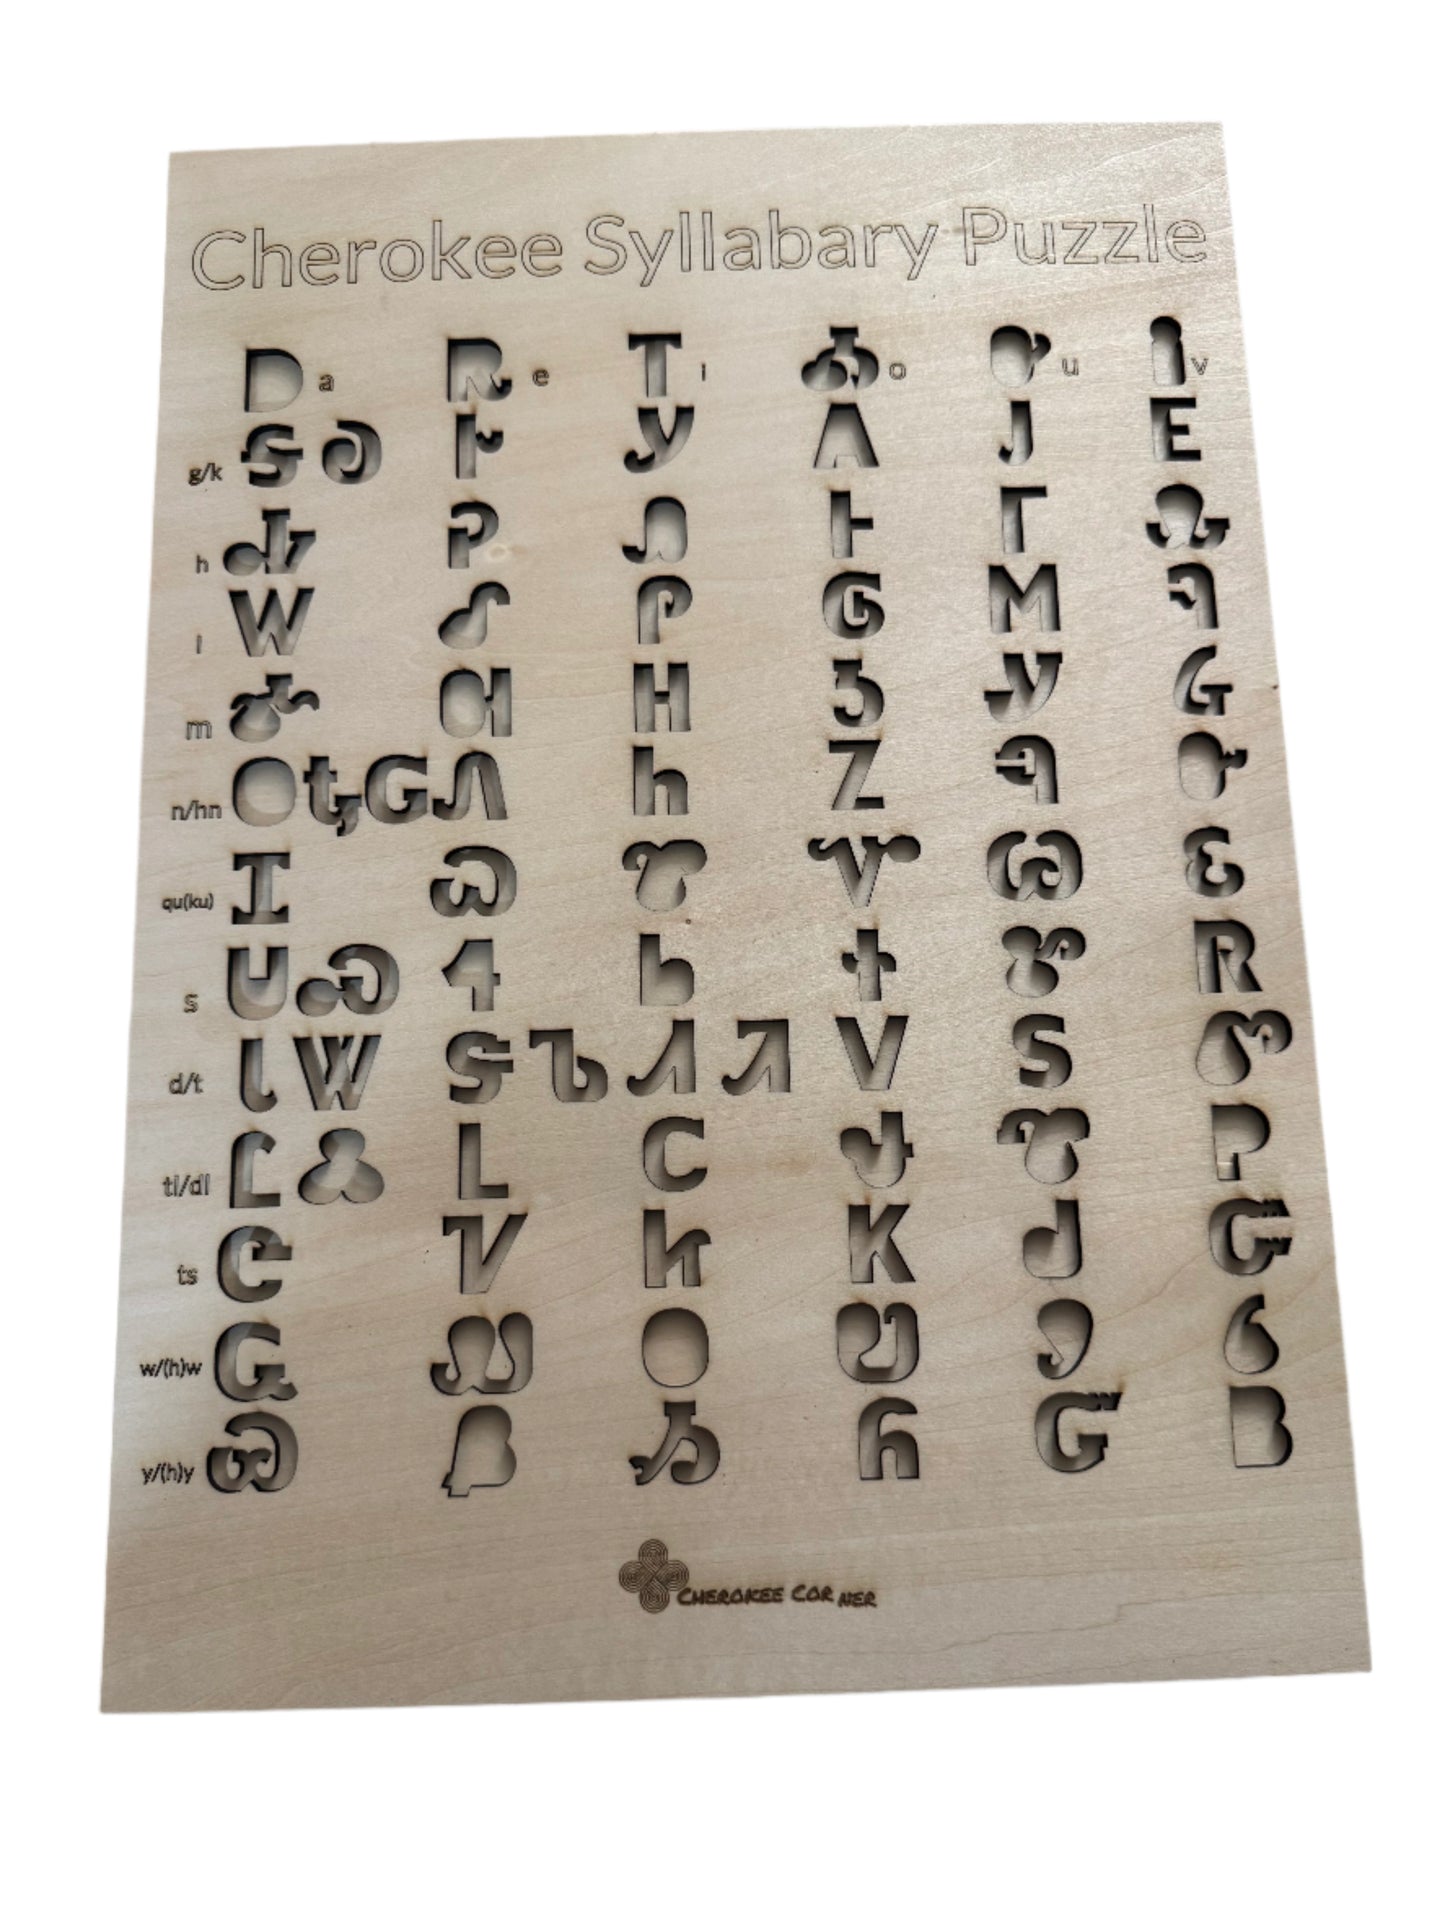 Cherokee Syllabary Puzzle
Ꭰ a Ꭱ e Ꭲ i Ꭳ o Ꭴ u Ꭵ v
g/k Ꭶ Ꭷ Ꭸ Ꭹ Ꭺ Ꭻ Ꭼ
h Ꭽ Ꭾ Ꭿ Ꮀ Ꮁ Ꮂ
l Ꮃ Ꮄ Ꮅ Ꮆ Ꮇ Ꮈ
m Ꮉ Ꮊ Ꮋ Ꮌ Ꮍ Ᏽ
n/hn Ꮎ Ꮏ Ꮐ Ꮑ Ꮒ Ꮓ Ꮔ Ꮕ
qu(ku) Ꮖ Ꮗ Ꮘ Ꮙ Ꮚ Ꮛ
s Ꮜ Ꮝ Ꮞ Ꮟ Ꮠ Ꮡ Ꮢ
d/t Ꮣ Ꮤ Ꮥ Ꮦ Ꮧ Ꮨ Ꮩ Ꮪ Ꮫ
tl/dl Ꮬ Ꮭ Ꮮ Ꮯ Ꮰ Ꮱ Ꮲ
ts Ꮳ Ꮴ Ꮵ Ꮶ Ꮷ Ꮸ
w/(h)w Ꮹ Ꮺ Ꮻ Ꮼ Ꮽ Ꮾ
y/(h)y Ꮿ Ᏸ Ᏹ Ᏺ Ᏻ Ᏼ
CHEROKEE CORNER